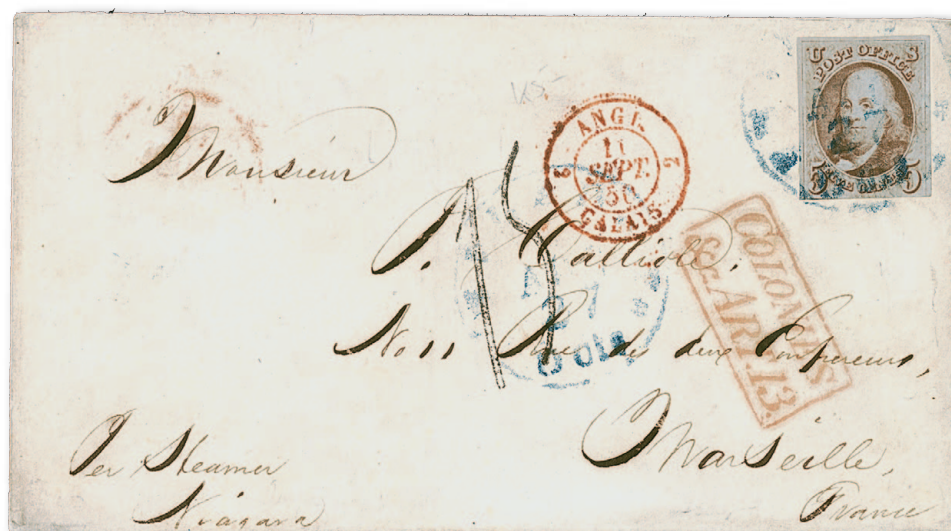 U S
POST OFFICE
5 5
ANGL.
11
SEPT.
50
CALAIS
2
COLONIES
&c. ART. 13.
15
Monsieur
No 11 Rue des deux Empereurs,
Marseille,
France
Per Steamer
Niagara